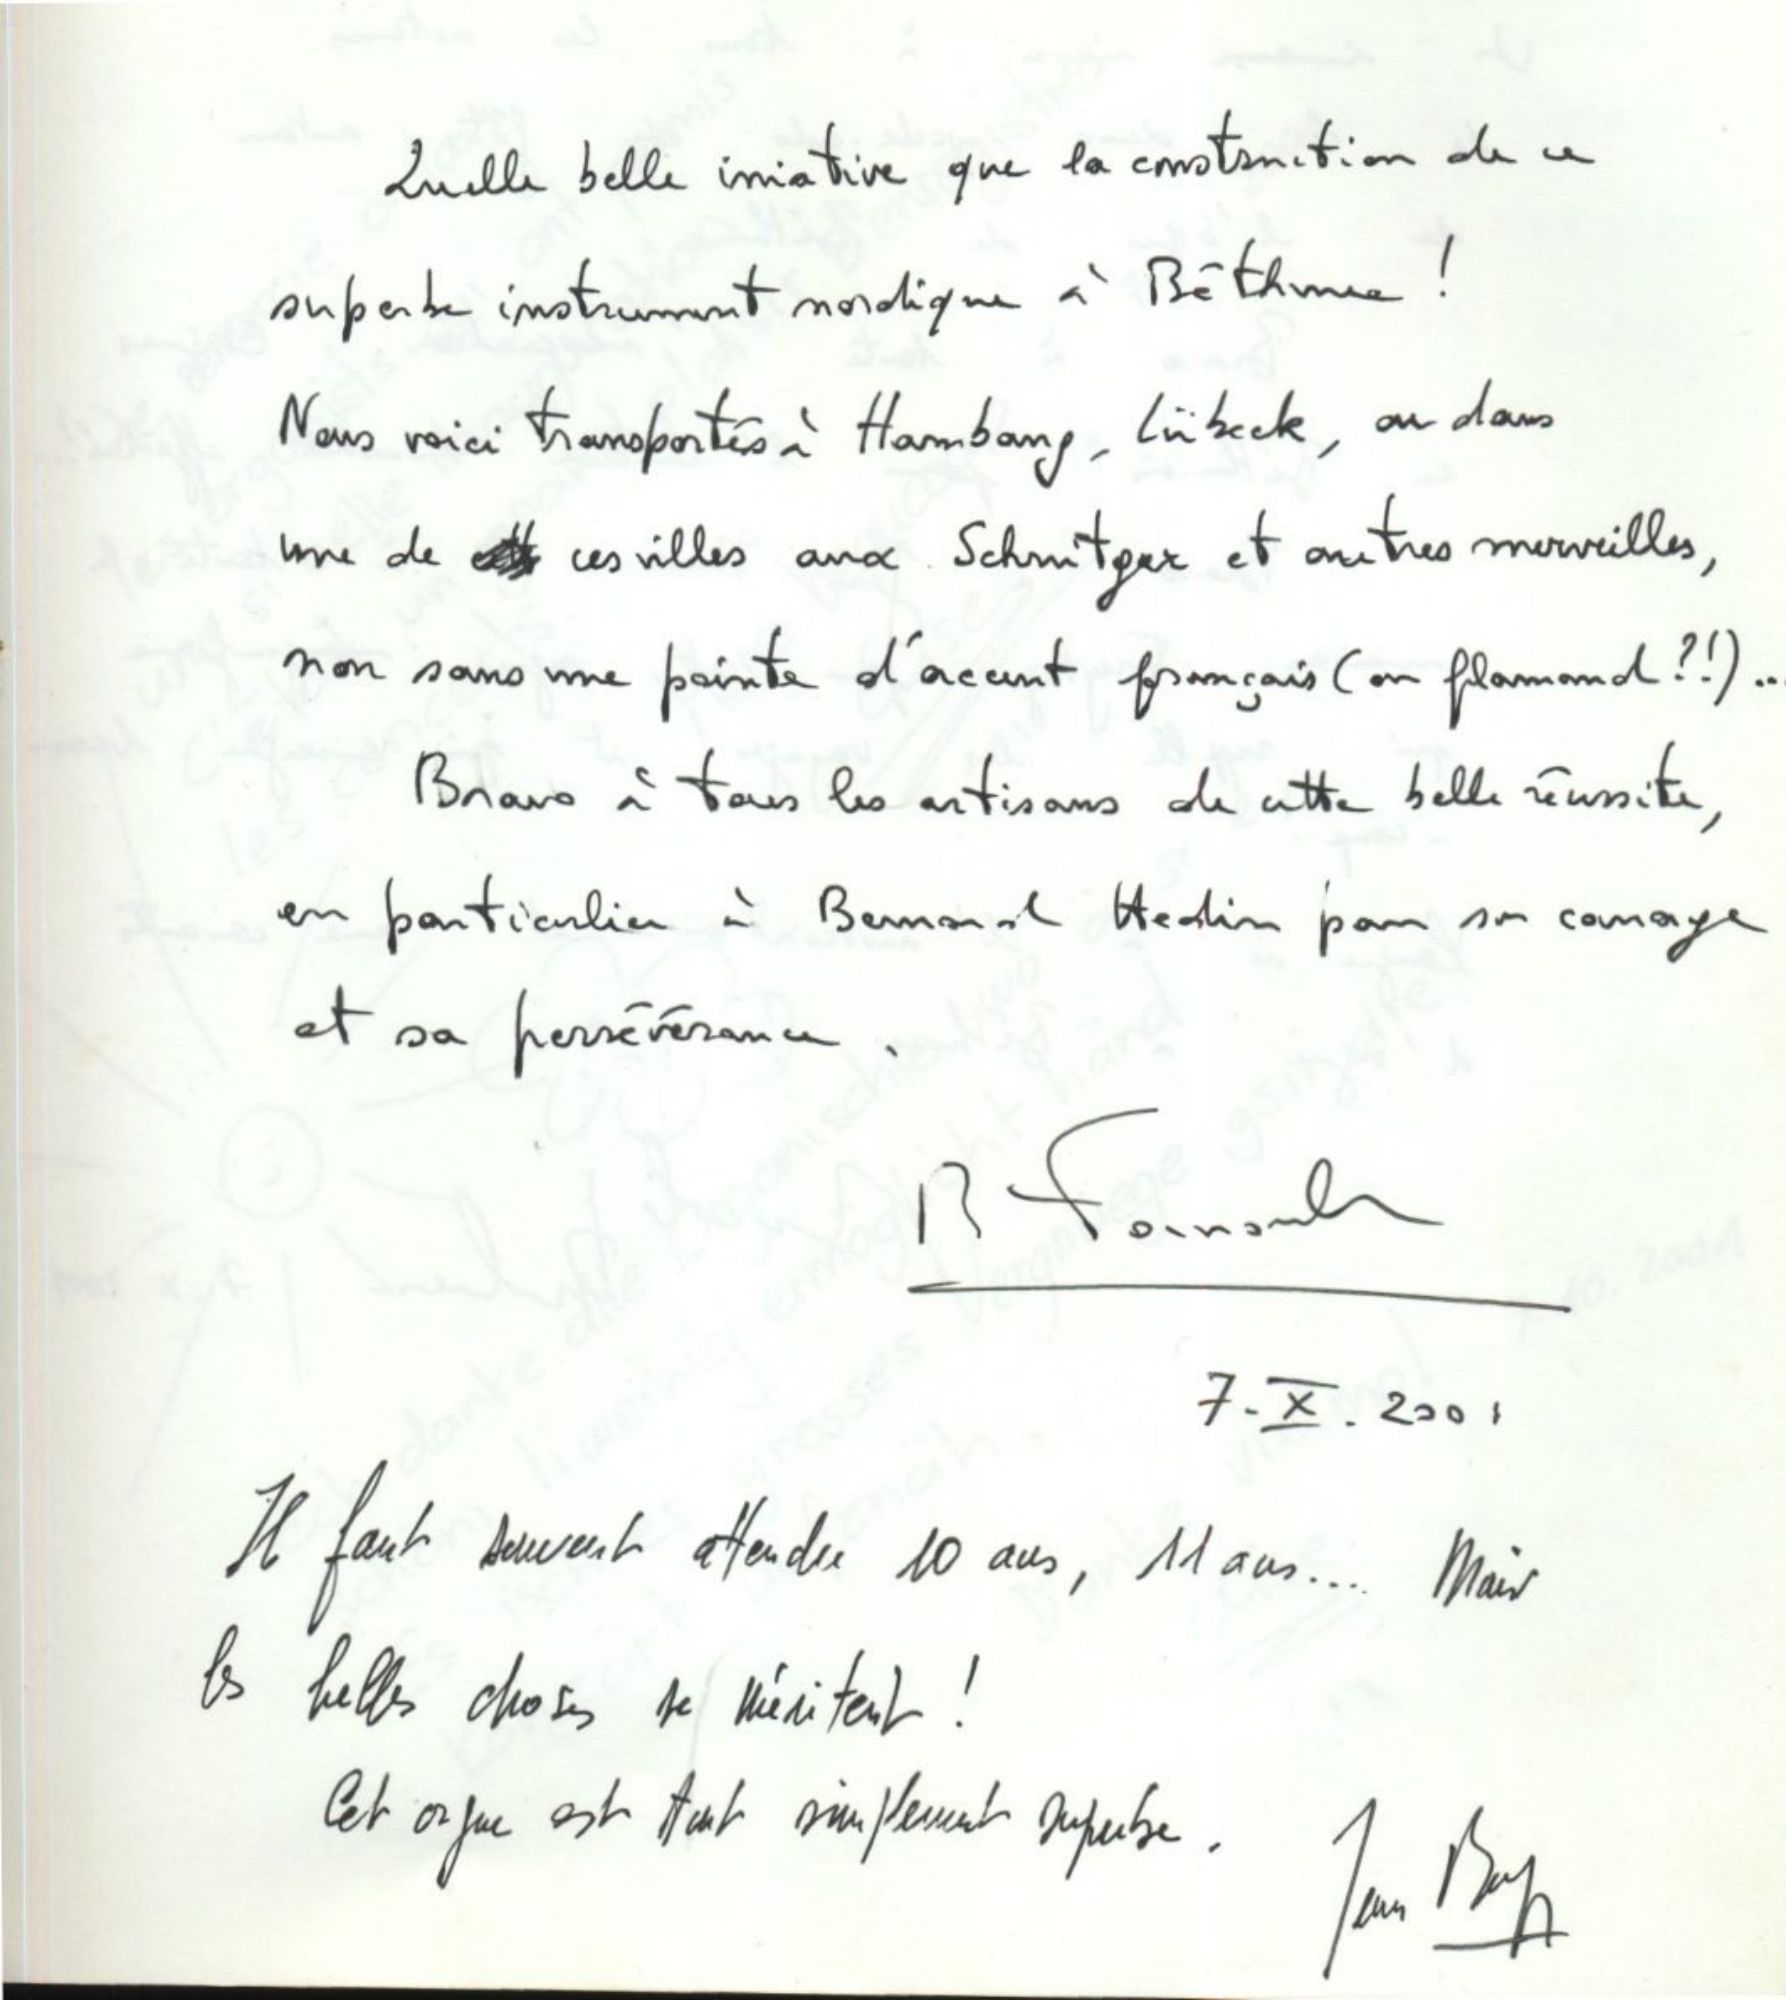 Quelle belle iniative que la construction de ce
superbe instrument nordique à Béthune !
Nous voici transportés à Hambourg, Lübeck, ou dans
une de ces villes aux Schnitger et autres merveilles,
non sans une pointe d'accent français (ou flamand ?!)...
Bravo à tous les artisans de cette belle réussite,
en particulier à Bernard Hedin pour son courage
et sa persévérance.
7.X.2001
Il faut souvent attendre 10 ans, 11 ans.... Mais
les belles choses se méritent !
Cet orgue est tout simplement superbe.
Jean